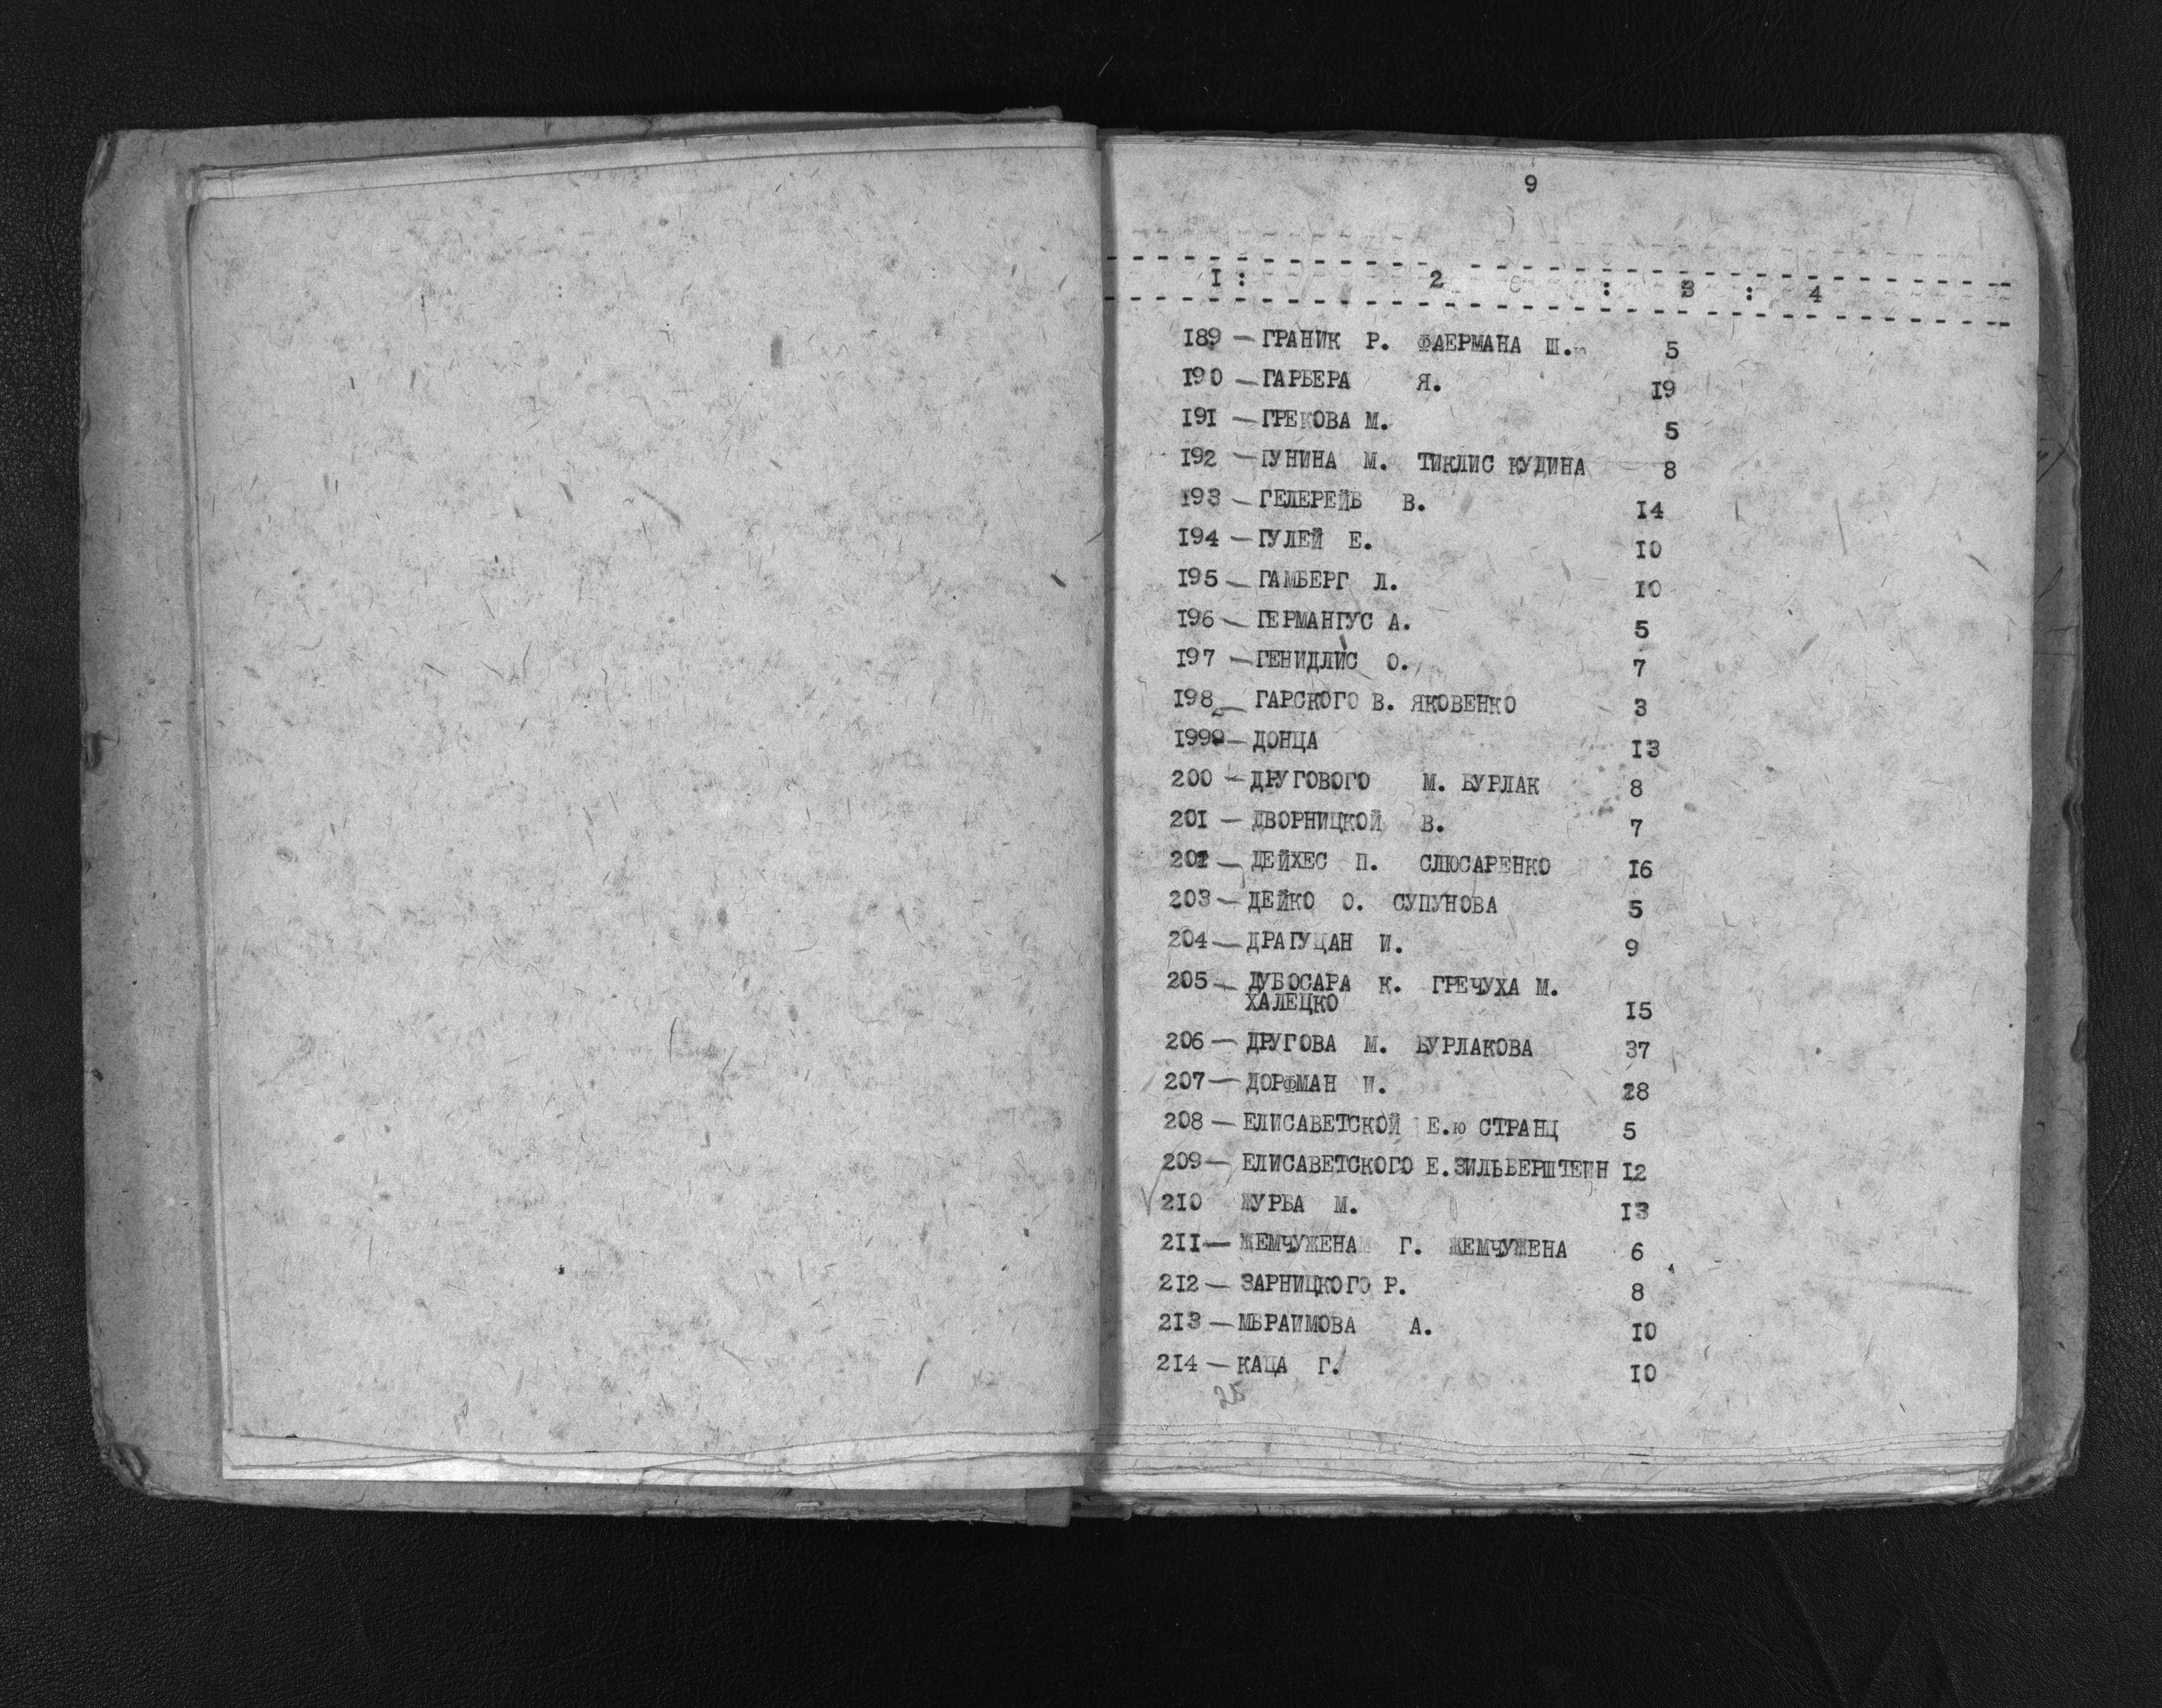 9
I : 2 : 3 : 4
189 — ГРАНИК Р. ФАЕРМАНА Ш. 5
190 — ГАРБЕРА Я. 19
191 — ГРЕКОВА М. 5
192 — ГУНИНА М. ТИКЛИС КУДИНА 8
193 — ГЕЛЕРЕЙБ В. 14
194 — ГУЛЕЙ Е. 10
195 — ГАМБЕРГ Л. 10
196 — ГЕРМАНГУС А. 5
197 — ГЕНИДЛИС О. 7
198 — ГАРСКОГО В. ЯКОВЕНКО 3
1999 — ДОНЦА 13
200 — ДРУГОВОГО М. БУРЛАК 8
201 — ДВОРНИЦКОЙ В. 7
202 — ДЕЙХЕС П. СЛЮСАРЕНКО 16
203 — ДЕЙКО О. СУПУНОВА 5
204 — ДРАГУЦАН И. 9
205 — ДУБОСАРА К. ГРЕЧУХА М.
ХАЛЕЦКО 15
206 — ДРУГОВА М. БУРЛАКОВА 37
207 — ДОРФМАН И. 28
208 — ЕЛИСАВЕТСКОЙ Е.ю СТРАНД 5
209 — ЕЛИСАВЕТСКОГО Е. ЗИЛЬБЕРШТЕИН 12
210 ЖУРБА М. 13
211 — ЖЕМЧУЖЕНАМ Г. ЖЕМЧУЖЕНА 6
212 — ЗАРНИЦКОГО Р. 8
213 — МБРАИМОВА А. 10
214 — КАЦА Г. 10
25